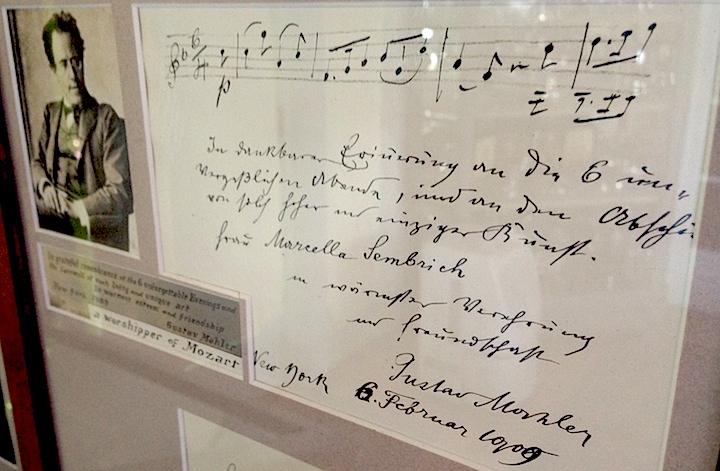 In dankbarer Erinerung an die 6 un„
vergeßlichen Abende, und an den Abschi
von solch hoher und einziger Kunst.
Frau Marcella Sembrich
in wärmster Verehrung
und Freundschaft
Gustav Mahler
New York 6. Februar 1909
In grateful remembrance of the 6 unforgettable Evenings and
the farewell of such lofty and unique art
in warmest esteem and friendship
New York, 1909 Gustav Mahler
a worshipper of Mozart